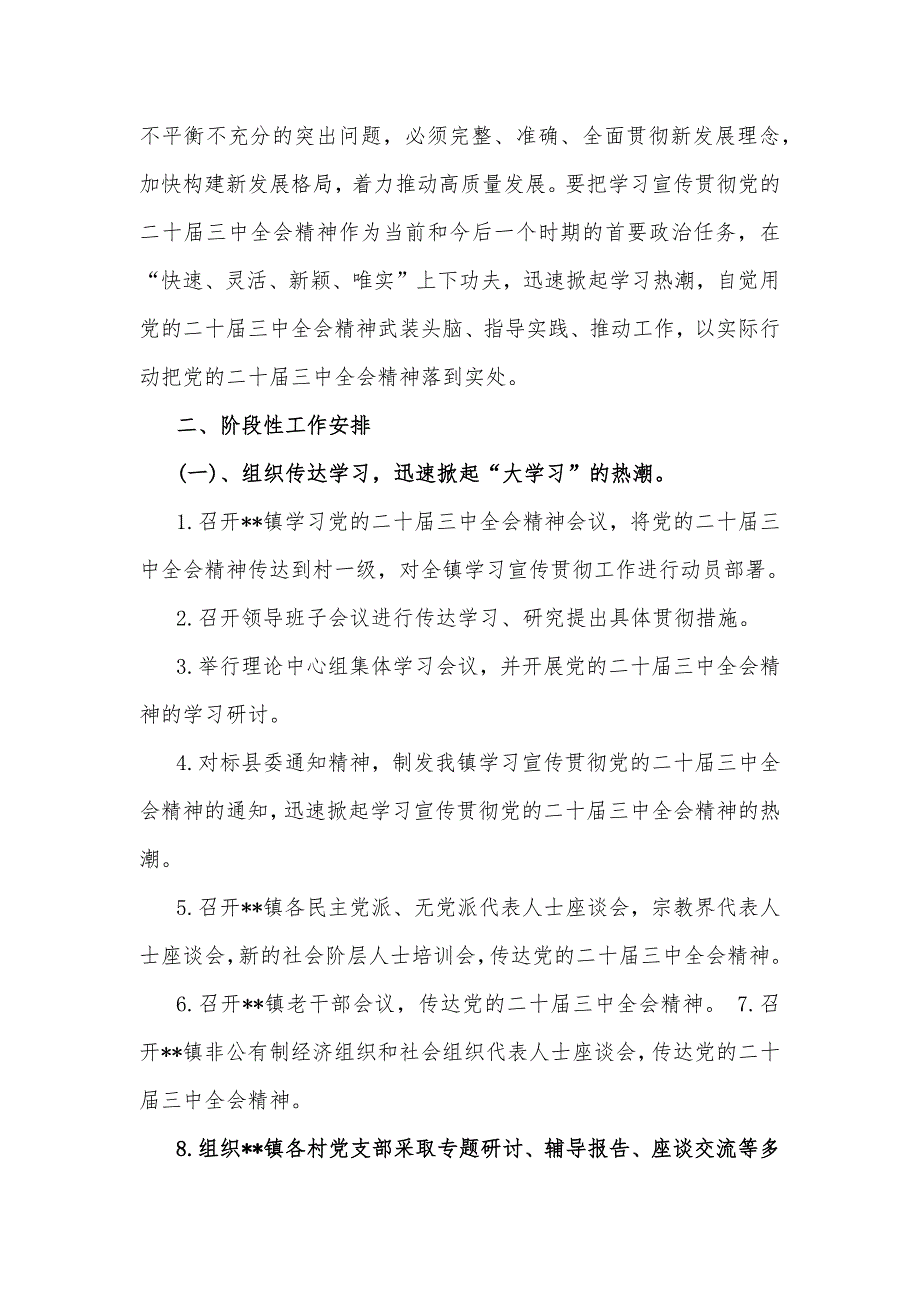 不平衡不充分的突出问题，必须完整、准确、全面贯彻新发展理念，
加快构建新发展格局，着力推动高质量发展。要把学习宣传贯彻党的
二十届三中全会精神作为当前和今后一个时期的首要政治任务，在
“快速、灵活、新颖、唯实”上下功夫，迅速掀起学习热潮，自觉用
党的二十届三中全会精神武装头脑、指导实践、推动工作，以实际行
动把党的二十届三中全会精神落到实处。
二、阶段性工作安排
(一)、组织传达学习，迅速掀起“大学习”的热潮。
1.召开**镇学习党的二十届三中全会精神会议，将党的二十届三
中全会精神传达到村一级，对全镇学习宣传贯彻工作进行动员部署。
2.召开领导班子会议进行传达学习、研究提出具体贯彻措施。
3.举行理论中心组集体学习会议，并开展党的二十届三中全会精
神的学习研讨。
4.对标县委通知精神，制发我镇学习宣传贯彻党的二十届三中全
会精神的通知，迅速掀起学习宣传贯彻党的二十届三中全会精神的热
潮。
5.召开**镇各民主党派、无党派代表人士座谈会，宗教界代表人
士座谈会，新的社会阶层人士培训会，传达党的二十届三中全会精神。
6.召开**镇老干部会议，传达党的二十届三中全会精神。 7.召
开**镇非公有制经济组织和社会组织代表人士座谈会，传达党的二十
届三中全会精神。
8.组织**镇各村党支部采取专题研讨、辅导报告、座谈交流等多